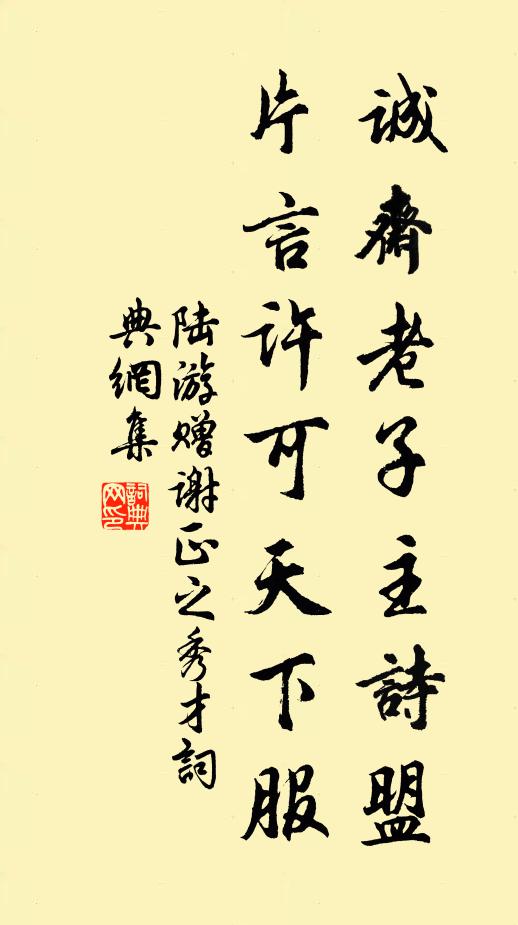 誠齋老子主詩盟
片言许可天下服
陆游赠谢正之秀才詞
典網集
詞典网印